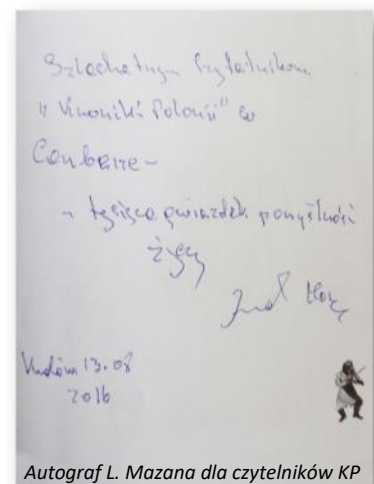 Szlachetnym Czytelnikom
"Kroniki Polonii" w
Canberze -
- tysiąca gwiazdek pomyślności
życzy
13.08
2016
Autograf L. Mazana dla czytelników KP